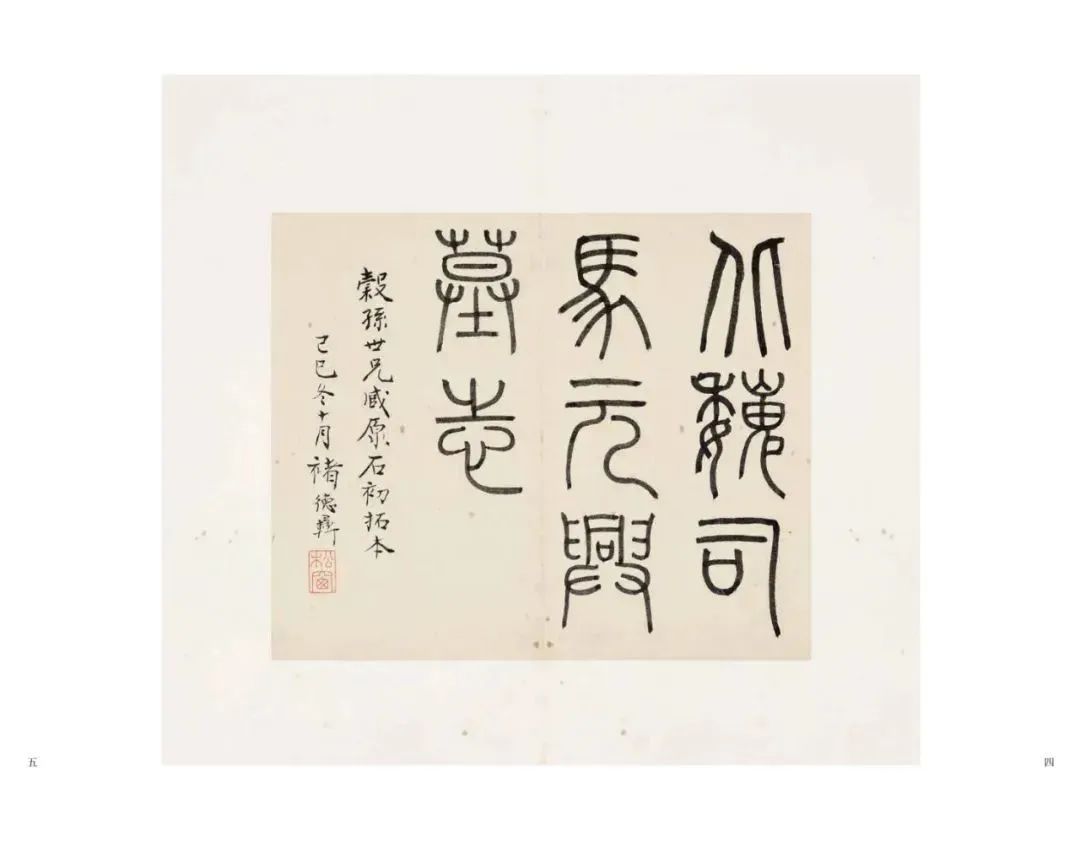 北魏司
馬元興
墓志
穀孫世兄臧原石初拓本
己巳冬十月褚德彝
松窗
四
五